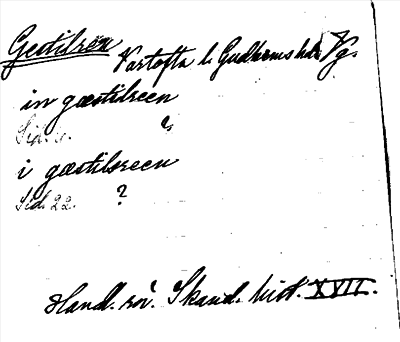 Gestilsren Vartofta l. Gudhems hd. Vg.
in gæstilreen
Sid. ?
i gæstilsreen
Sid. 22. ?
Handl. rör. Skand. hist. XVII.